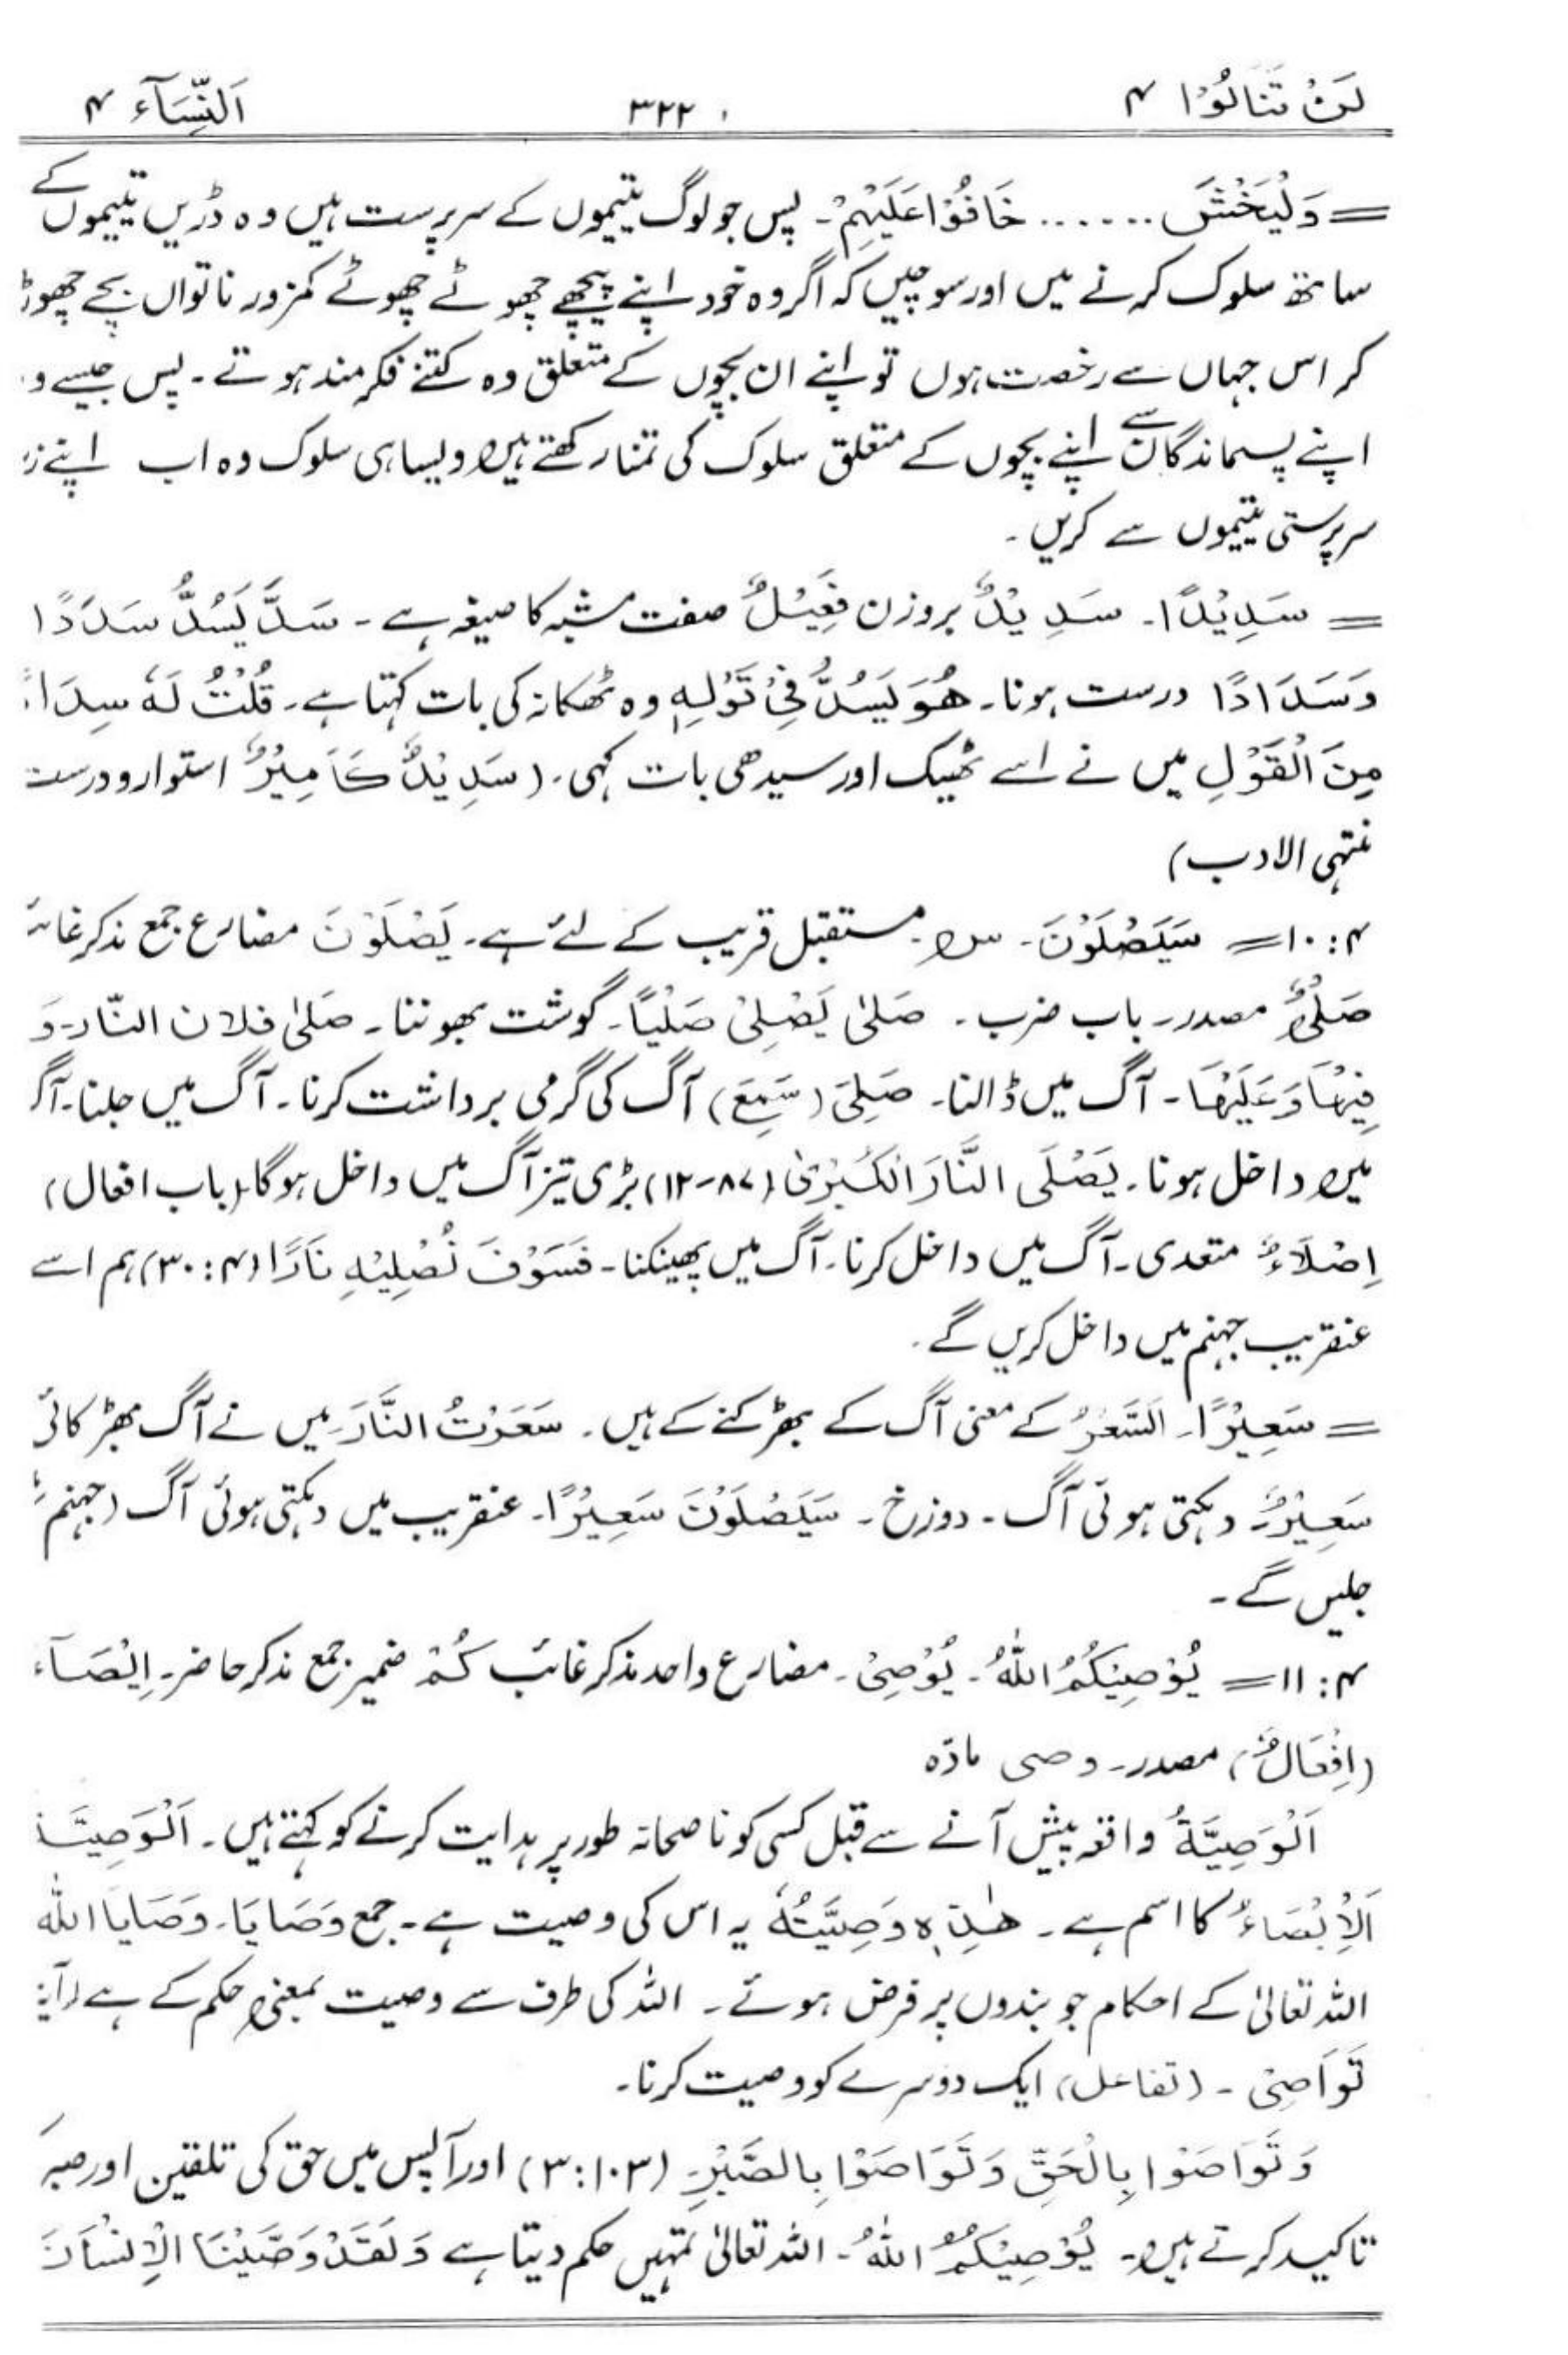 لَنْ تَنَالُوْا ۴ ۳۲۲ اَلنِّسَآء ۴
= وَلْيَخْشَ ...... خَافُوْا عَلَيْهِمْ۔ پس جو لوگ یتیموں کے سرپرست ہیں وہ ڈریں یتیموں کے
ساتھ سلوک کرنے میں اور سوچیں کہ اگر وہ خود اپنے پیچھے چھوٹے چھوٹے کمزور ناتواں بچے چھوڑ
کر اس جہاں سے رخصت ہوں تو اپنے ان بچوں کے متعلق وہ کتنے فکر مند ہوتے۔ پس جیسے و
اپنے پسماندگان سے اپنے بچوں کے متعلق سلوک کی تمنا رکھتے ہیں ویسا ہی سلوک وہ اب اپنے ز
سرپرستی یتیموں سے کریں۔
= سَدِيْدًا۔ سَدِيْدٌ بروزن فَعِيْلٌ صفت مشبہ کا صیغہ ہے۔ سَدَّ يَسُدُّ سَدَدًا
وَسَدَادًا درست ہونا۔ هُوَ يَسُدُّ فِيْ قَوْلِهٖ وہ ٹھکانہ کی بات کہتا ہے۔ قُلْتُ لَهٗ سِدَا
مِنَ الْقَوْلِ میں نے اسے ٹھیک اور سیدھی بات کہی۔ (سَدِيْدٌ كَاَمِيْرٌ استوار و درست
نتہی الادب)
۴: ۱۰ = سَيَصْلَوْنَ۔ س۔ مستقبل قریب کے لئے ہے۔ يَصْلَوْنَ مضارع جمع مذکر غائ
صَلْيٌ مصدر۔ باب ضرب۔ صَلىٰ يَصْلِيْ صَلْيًا۔ گوشت بھوننا۔ صَلىٰ فلان النّار۔ وَ
فِيْهَا وَعَلَيْهَا۔ آگ میں ڈالنا۔ صَلِيَ (سَمِعَ) آگ کی گرمی برداشت کرنا۔ آگ میں جلنا۔ آگ
میں داخل ہونا۔ يَصْلَى النَّارَ الْكُبْرىٰ (۸۷-۱۲) بڑی تیز آگ میں داخل ہوگا (باب افعال)
اِصْلَاءٌ متعدی۔ آگ میں داخل کرنا۔ آگ میں پھینکنا۔ فَسَوْفَ نُصْلِيْهِ نَارًا (۴: ۳۰) ہم اسے
عنقریب جہنم میں داخل کریں گے۔
= سَعِيْرًا۔ اَلسَّعْرُ کے معنی آگ کے بھڑکنے کے ہیں۔ سَعَرْتُ النَّارَ۔ میں نے آگ بھڑکائی
سَعِيْرٌ۔ دہکتی ہوئی آگ۔ دوزخ۔ سَيَصْلَوْنَ سَعِيْرًا۔ عنقریب میں دہکتی ہوئی آگ (جہنم
جلیں گے۔
۴: ۱۱ = يُوْصِيْكُمُ اللّٰهُ۔ يُوْصِيْ۔ مضارع واحد مذکر غائب كُمْ ضمیر جمع مذکر حاضر۔ اِيْصَآء
(اِفْعَالٌ) مصدر۔ وصی مادّہ
اَلْوَصِيَّةُ واقعہ پیش آنے سے قبل کسی کو ناصحانہ طور پر ہدایت کرنے کو کہتے ہیں۔ اَلْوَصِيَّة
اَلْاِيْصَاءُ کا اسم ہے۔ هٰذِهٖ وَصِيَّتُهٗ یہ اس کی وصیت ہے۔ جمع وَصَايَا۔ وَصَايَا اللّٰه
اللہ تعالیٰ کے احکام جو بندوں پر فرض ہوئے۔ اللہ کی طرف سے وصیت بمعنی حکم کے ہے (آیۃ
تَوَاصِيْ۔ (تفاعل) ایک دوسرے کو وصیت کرنا۔
وَتَوَاصَوْا بِالْحَقِّ وَتَوَاصَوْا بِالصَّبْرِ۔ (۱۰۳: ۳) اور آپس میں حق کی تلقین اور صبر
تاکید کرتے ہیں۔ يُوْصِيْكُمُ اللّٰهُ۔ اللہ تعالیٰ تمہیں حکم دیتا ہے وَلَقَدْ وَصَّيْنَا الْاِنْسَانَ